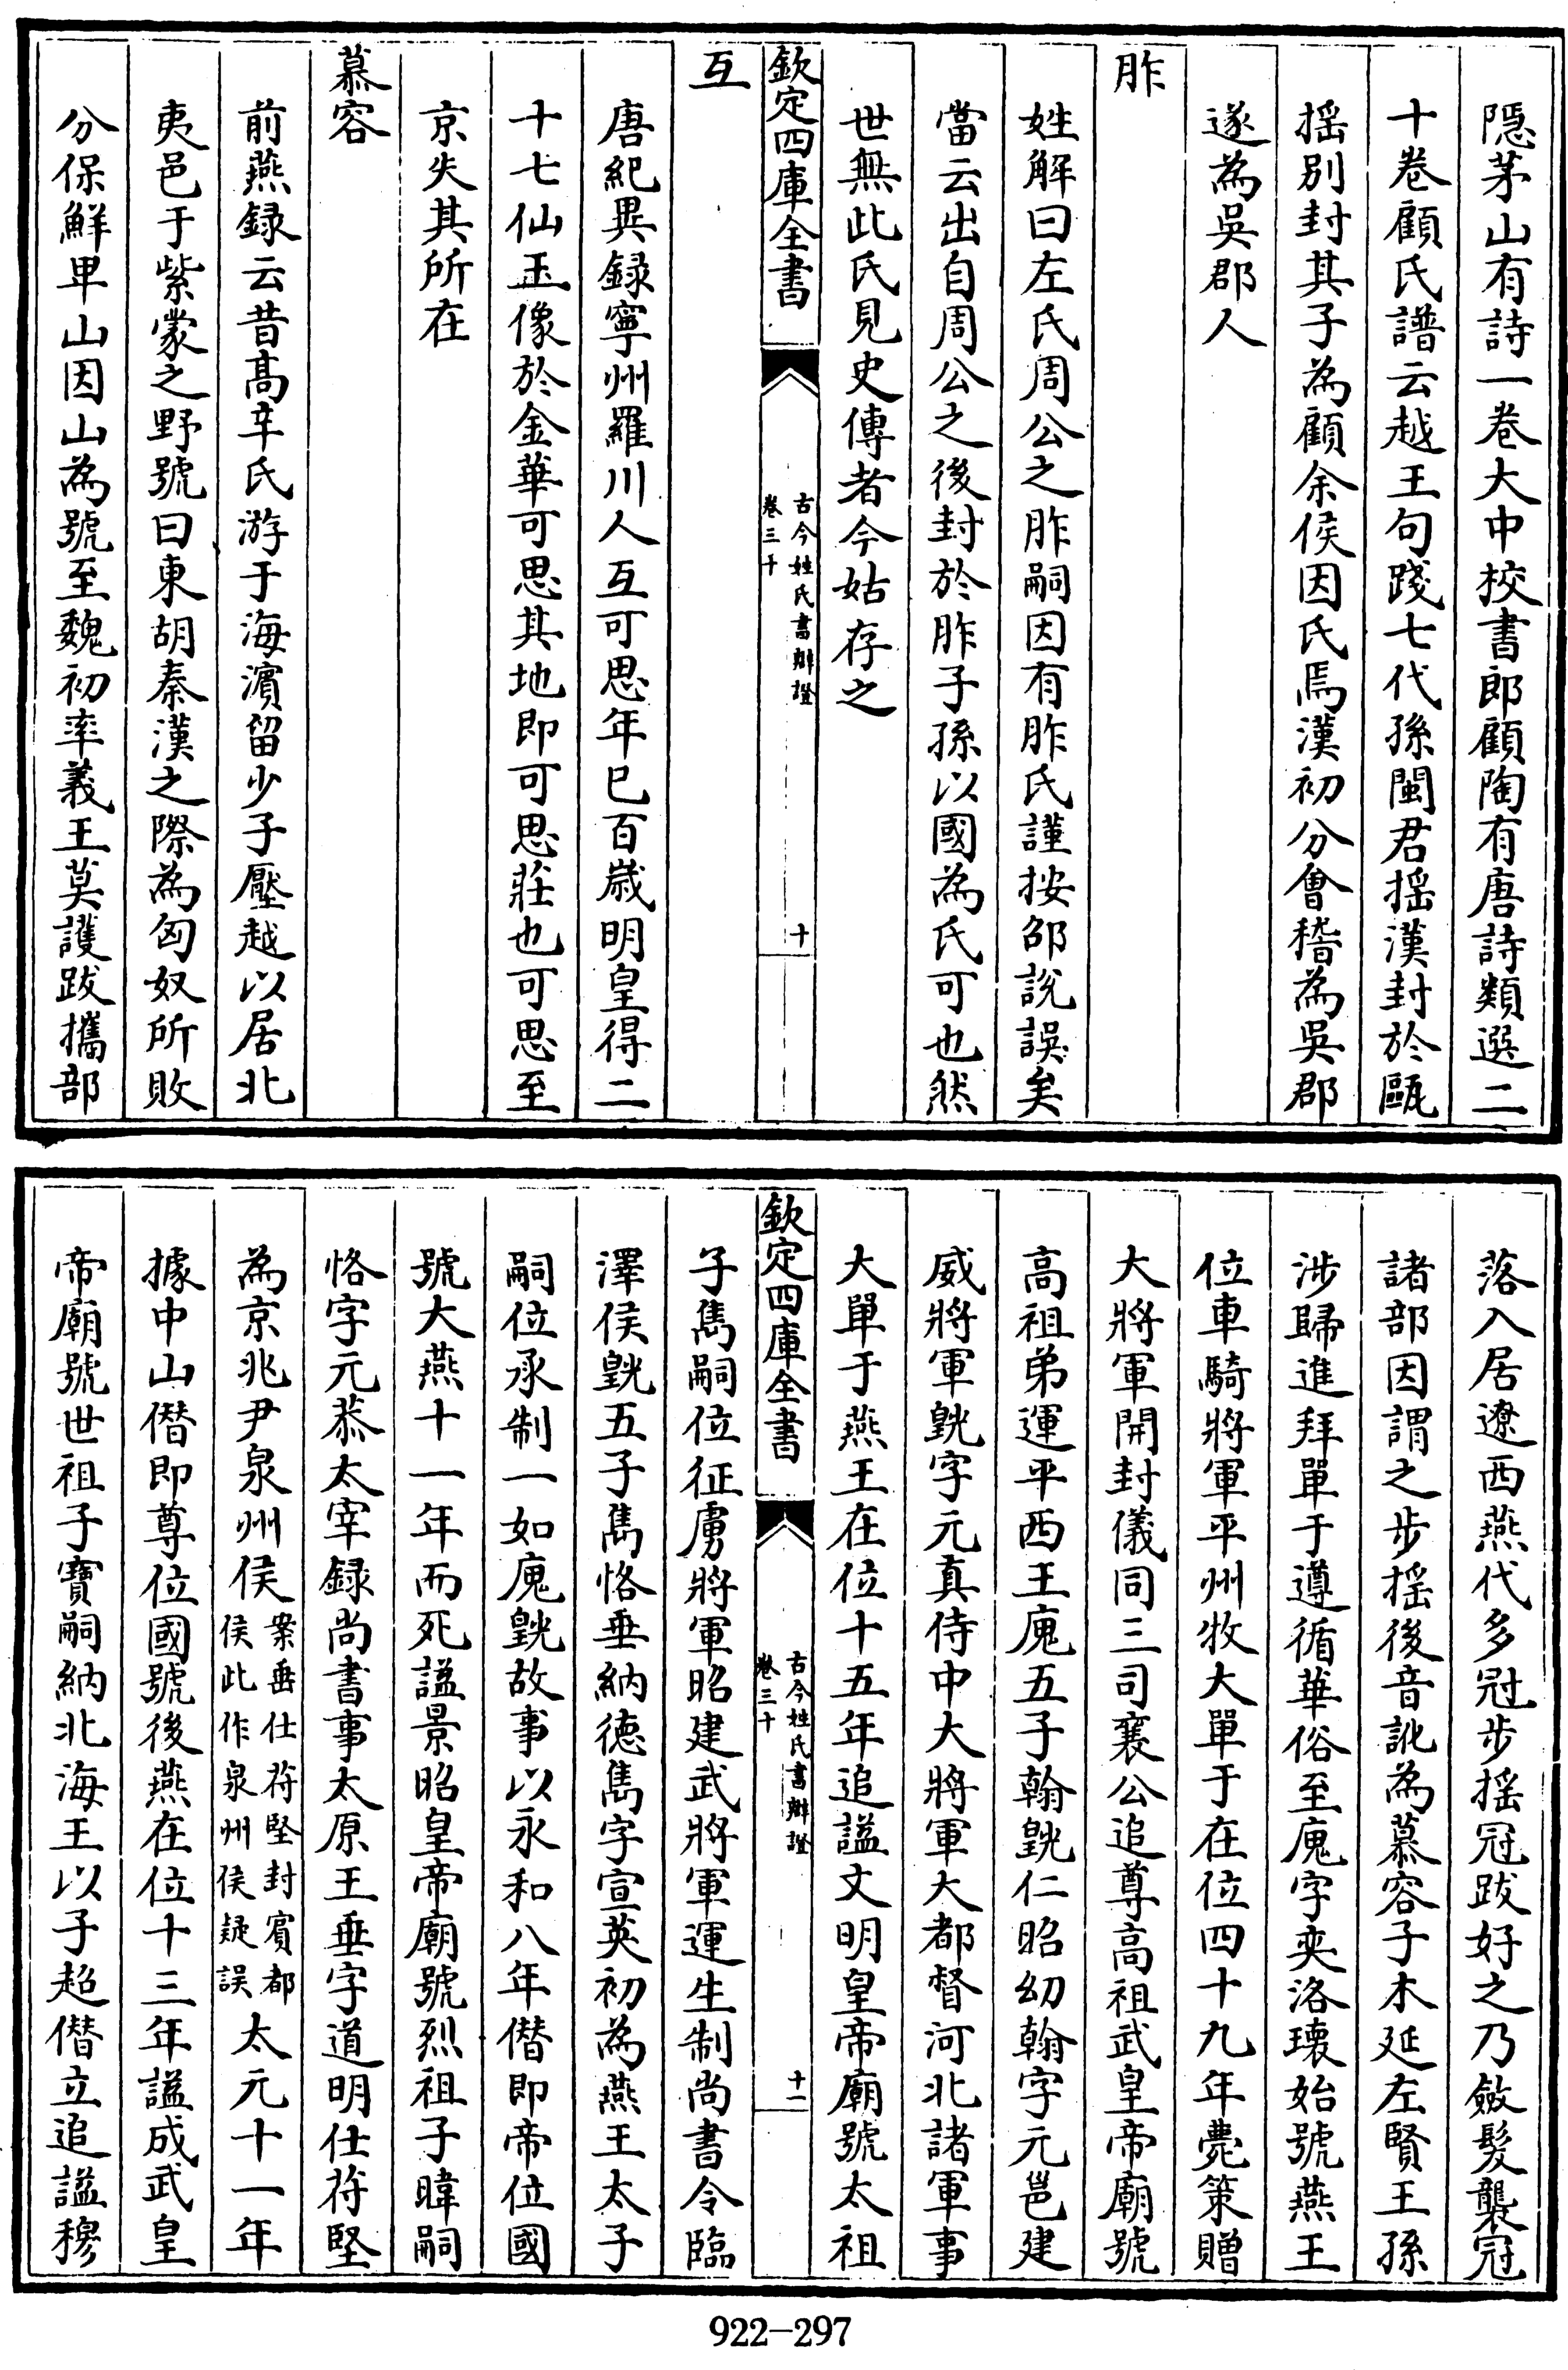 隱茅山有詩一卷大中校書郎顧陶有唐詩類選二
十卷顧氏譜云越王句踐七代孫閩君揺漢封於甌
揺别封其子為顧余侯因氏焉漢初分㑹稽為吳郡
遂為吳郡人
胙
姓解曰左氏周公之胙嗣因有胙氏謹按邵說誤矣
當云出自周公之後封於胙子孫以國為氏可也然
世無此氏見史傳者今姑存之
欽定四庫全書
古今姓氏書辯證
卷三十
十
互
唐紀異録寧州羅川人互可思年已百嵗明皇得二
十七仙玉像於金華可思其地即可思莊也可思至
京失其所在
慕容
前燕録云昔髙辛氏游于海濵留少子壓越以居北
夷邑于紫蒙之野號曰東胡秦漢之際為匈奴所敗
分保鮮卑山因山為號至魏初率義王莫護跋攜部
落入居遼西燕代多冠步揺冠跋好之乃斂髮襲冠
諸部因謂之步揺後音訛為慕容子木延左賢王孫
涉歸進拜單于遵循華俗至廆字奕洛瓌始號燕王
位車騎將軍平州牧大單于在位四十九年薨策贈
大將軍開封儀同三司襄公追尊高祖武皇帝廟號
高祖弟運平西王廆五子翰皝仁昭幼翰字元邕建
威將軍皝字元真侍中大將軍大都督河北諸軍事
大單于燕王在位十五年追謚文明皇帝廟號太祖
欽定四庫全書
古今姓氏書辯證
卷三十
十一
子雋嗣位征虜將軍昭建武將軍運生制尚書令臨
澤侯皝五子雋恪垂納德雋字宣英初為燕王太子
嗣位承制一如廆皝故事以永和八年僭即帝位國
號大燕十一年而死謚景昭皇帝廟號烈祖子暐嗣
恪字元恭太宰録尚書事太原王垂字道明仕苻堅
為京兆尹泉州侯案垂仕苻堅封賔都侯此作泉州侯疑誤太元十一年
據中山僭即尊位國號後燕在位十三年謚成武皇
帝廟號世祖子寶嗣納北海王以子超僭立追謚穆
922-297